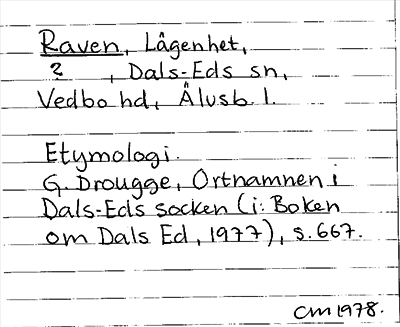 Raven, Lägenhet,
?, Dals-Eds sn,
Vedbo hd, Älvsb. l.
Etymologi.
G. Drougge, Ortnamnen i
Dals-Eds socken (i: Boken
om Dals Ed, 1977), s. 667.
CM 1978.